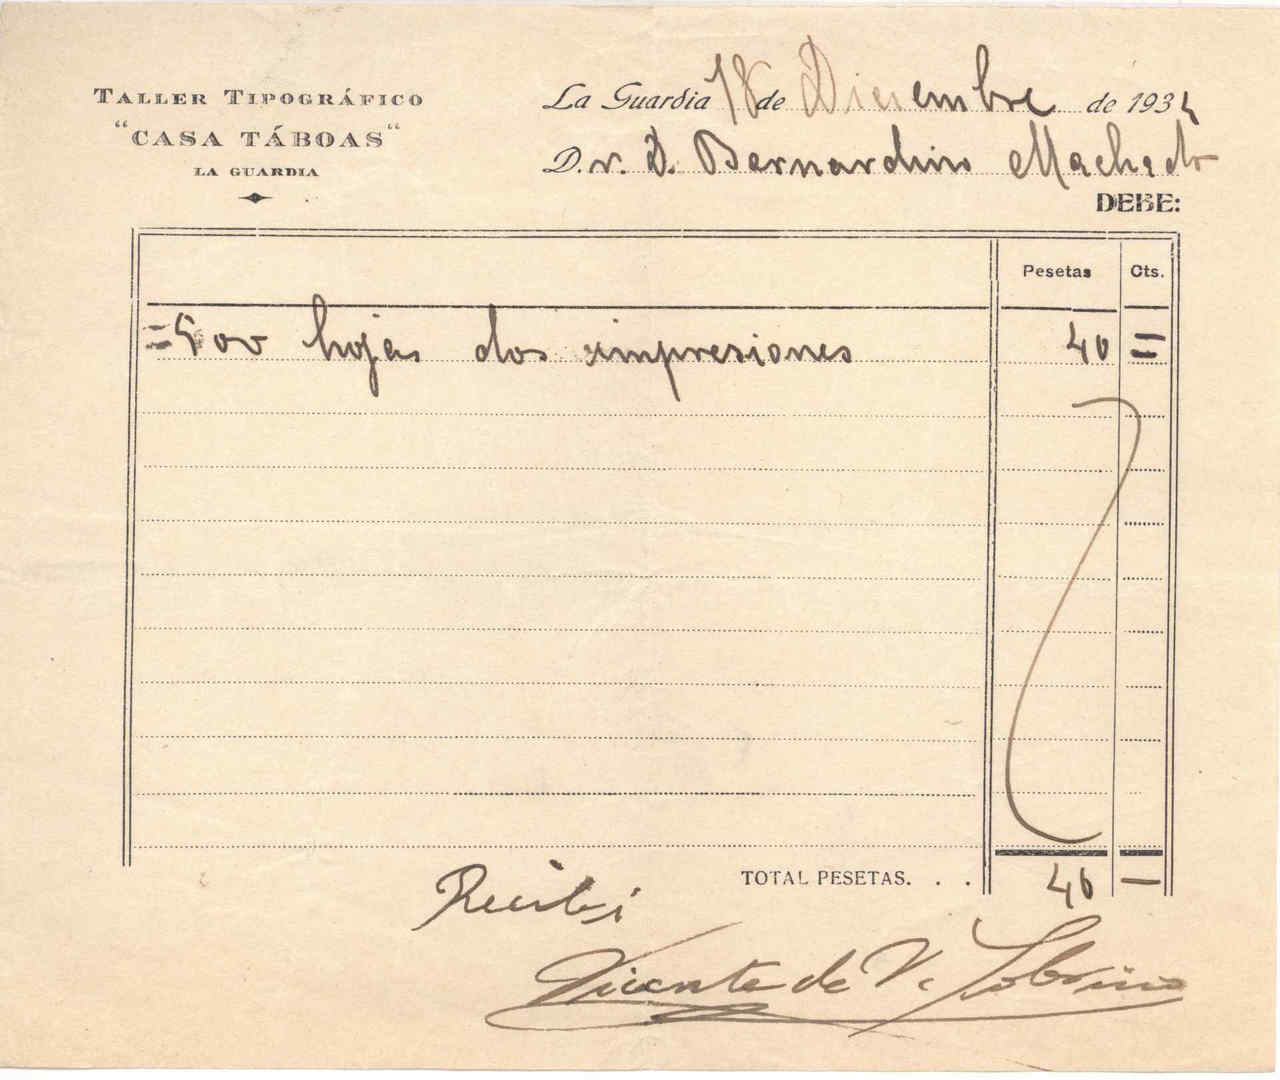 TALLER TIPOGRÁFICO
"CASA TÁBOAS"
LA GUARDIA
La Guardia 18 de Diciembre de 1934
D. r. D. Bernardino Machado
DEBE:
Pesetas Cts.
=500 hojas dos impresiones 40 =
TOTAL PESETAS. . . 40 —
Recibí
Vicente de V. Sobrino